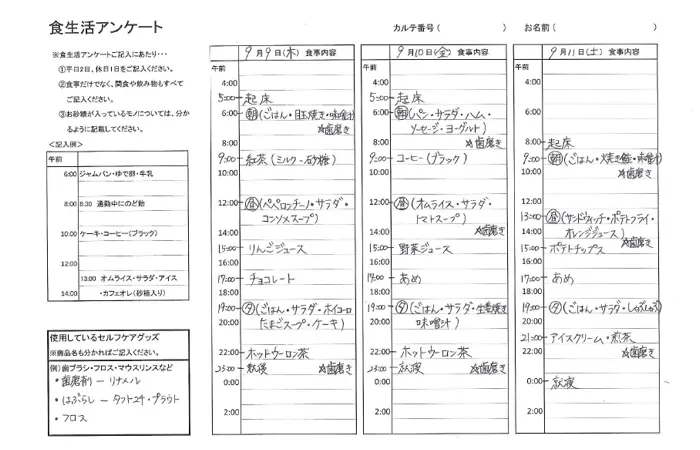 食生活アンケート
カルテ番号（　　　　）　お名前（　　　　）
※食生活アンケートご記入にあたり・・・
①平日2日、休日1日をご記入ください。
②食事だけでなく、間食や飲み物もすべて
ご記入ください。
③お砂糖が入っているモノについては、分か
るように記載してください。
＜記入例＞
午前
6:00 ジャムパン・ゆで卵・牛乳
8:00 8:30 通勤中にのど飴
10:00 ケーキ・コーヒー(ブラック)
12:00
13:00 オムライス・サラダ・アイス
14:00 ・カフェオレ(砂糖入り)
使用しているセルフケアグッズ
※商品名も分かればご記入ください。
例)歯ブラシ・フロス・マウスリンスなど
・歯磨剤 ― リナメル
・はぶらし ― タフト24・プラウト
・フロス
9月9日(木) 食事内容
午前
4:00
5:00 起床
6:00 朝(ごはん・目玉焼き・味噌汁)
☆歯磨き
8:00
9:00 紅茶(ミルク・砂糖)
10:00
12:00 昼(ペペロンチーノ・サラダ・
コンソメスープ)
14:00
15:00 りんごジュース
16:00
17:00 チョコレート
18:00
19:00 夕(ごはん・サラダ・ホイコーロ
20:00 たまごスープ・ケーキ)
22:00 ホットウーロン茶
23:00 就寝 ☆歯磨き
0:00
2:00
9月10日(金) 食事内容
午前
4:00
5:00 起床
6:00 朝(パン・サラダ・ハム・
ソーセージ・ヨーグルト)
8:00 ☆歯磨き
9:00 コーヒー(ブラック)
10:00
12:00 昼(オムライス・サラダ・
トマトスープ)
14:00 ☆歯磨き
15:00 野菜ジュース
16:00
17:00 あめ
18:00
19:00 夕(ごはん・サラダ・生姜焼き
20:00 味噌汁)
22:00 ホットウーロン茶
23:00 就寝 ☆歯磨き
0:00
2:00
9月11日(土) 食事内容
午前
4:00
6:00
8:00 起床
9:00 朝(ごはん・焼き鮭・味噌汁)
10:00 ☆歯磨き
12:00
13:00 昼(サンドウィッチ・ポテトフライ・
14:00 オレンジジュース)
☆歯磨き
15:00 ポテトチップス
16:00
17:00 あめ
18:00
19:00 夕(ごはん・サラダ・しゃぶしゃぶ)
20:00
21:00 アイスクリーム・煎茶
22:00 ☆歯磨き
0:00 就寝
2:00